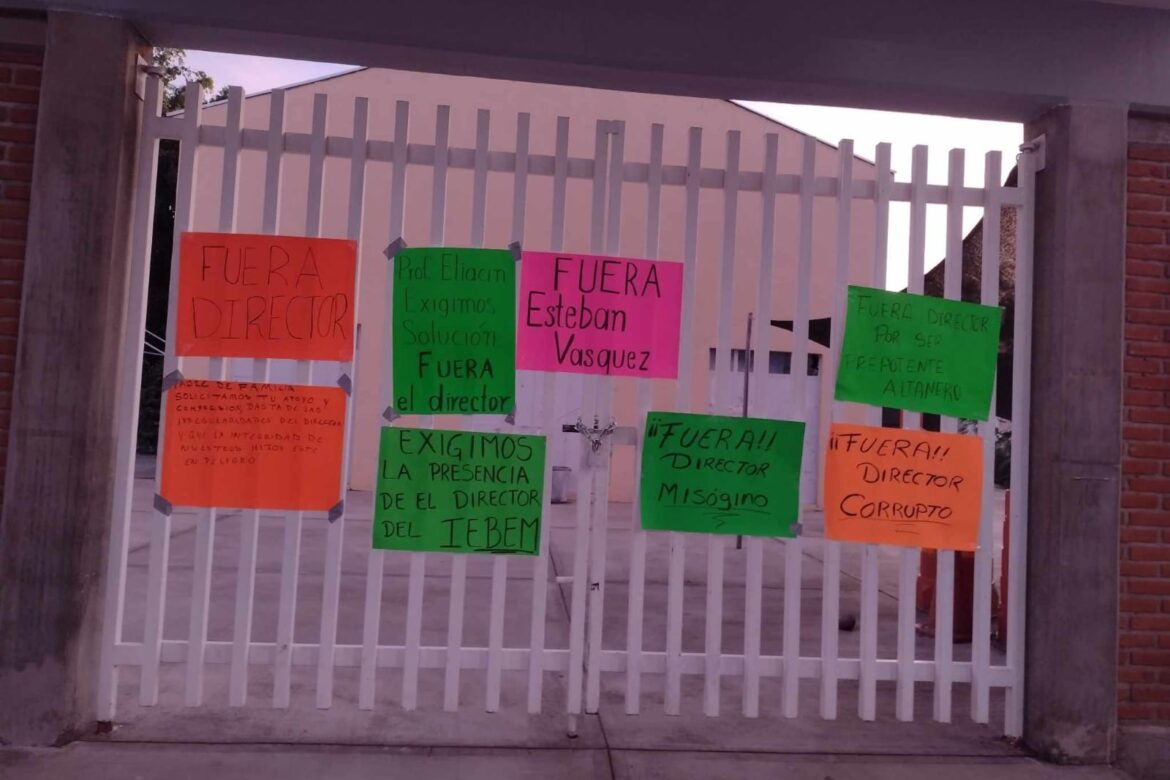 FUERA
DIRECTOR
Prof. Eliacin
Exigimos
Solución
FUERA
el director
FUERA
Esteban
Vasquez
FUERA DIRECTOR
POR SER
PREPOTENTE
ALTANERO
DE FAMILIA
SOLICITAMOS TU APOYO Y
COMPRESION, BASTA DE LAS
IRREGULARIDADES DEL DIRECTOR
Y QUE LA INTEGRIDAD DE
NUESTROS HIJOS ESTE
EN PELIGRO
EXIGIMOS
LA PRESENCIA
DE EL DIRECTOR
DEL IEBEM
¡¡FUERA!!
DIRECTOR
MISógino
¡¡FUERA!!
DIRECTOR
CORRUPTO